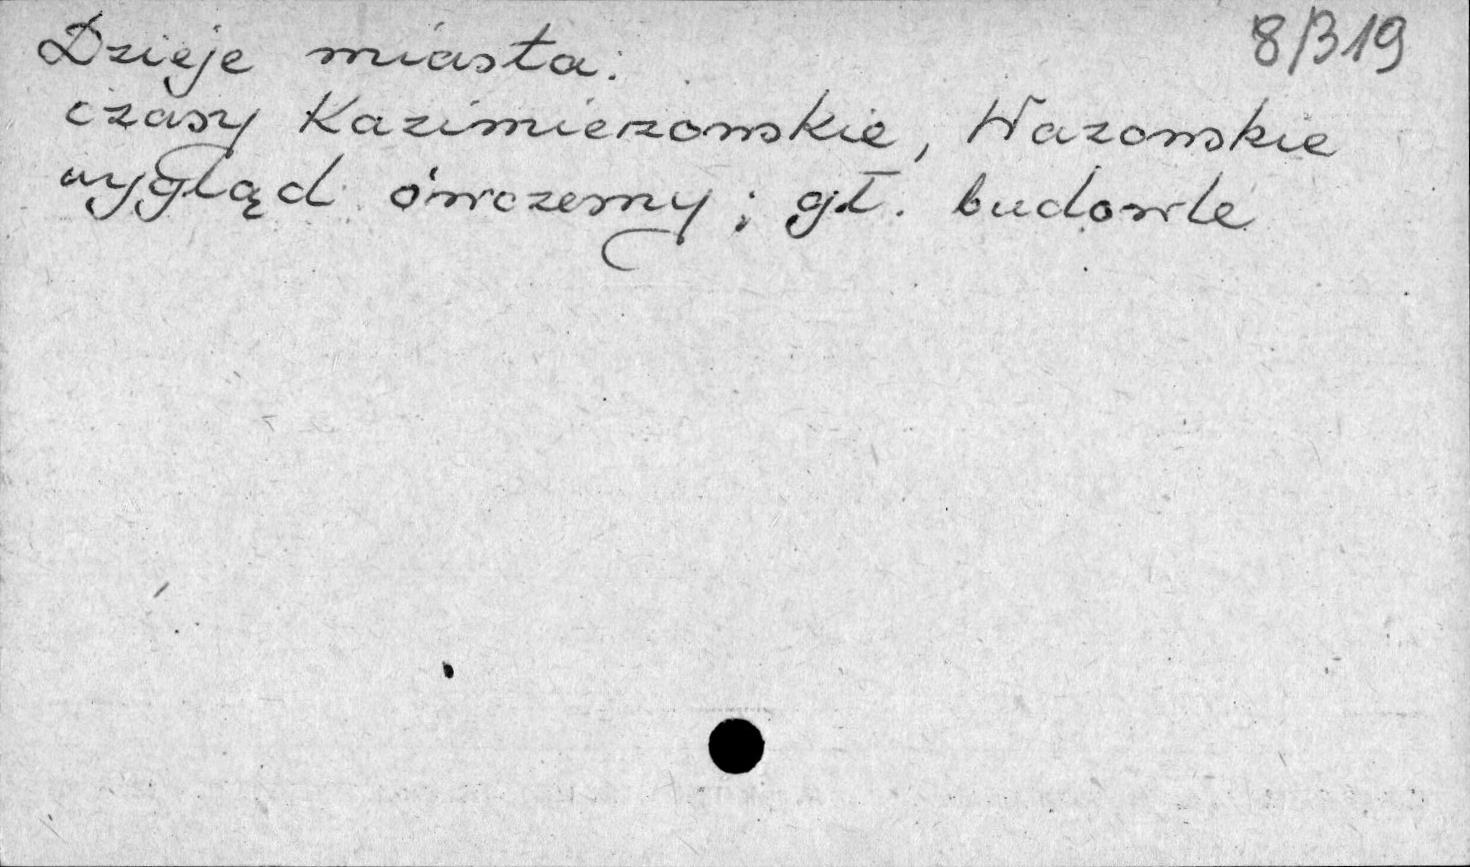 8/319
Dzieje miasta:
czasy Kazimierzowskie, Wazowskie
wygląd ówczesny; gł. budowle